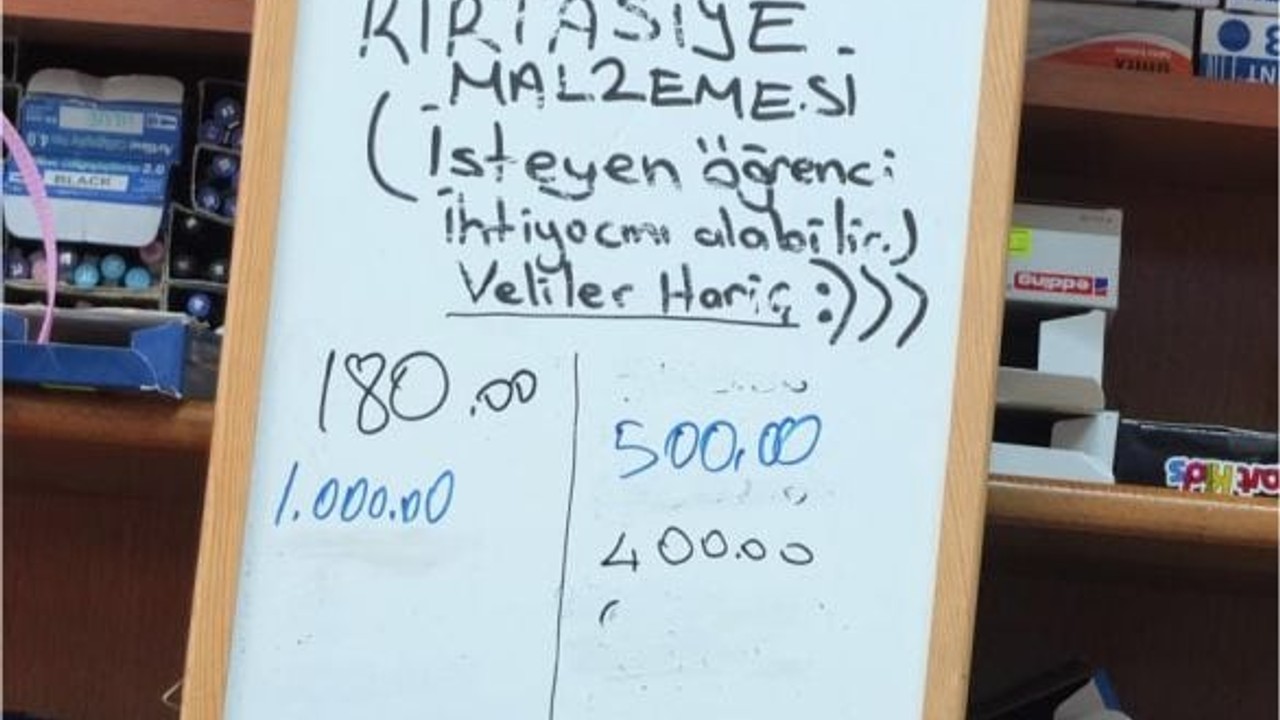 KIRTASİYE
MALZEMESİ
(İsteyen öğrenci
ihtiyacını alabilir.)
Veliler Hariç :)))
180.00
1.000.00
500,00
400.00
BLACK
edding